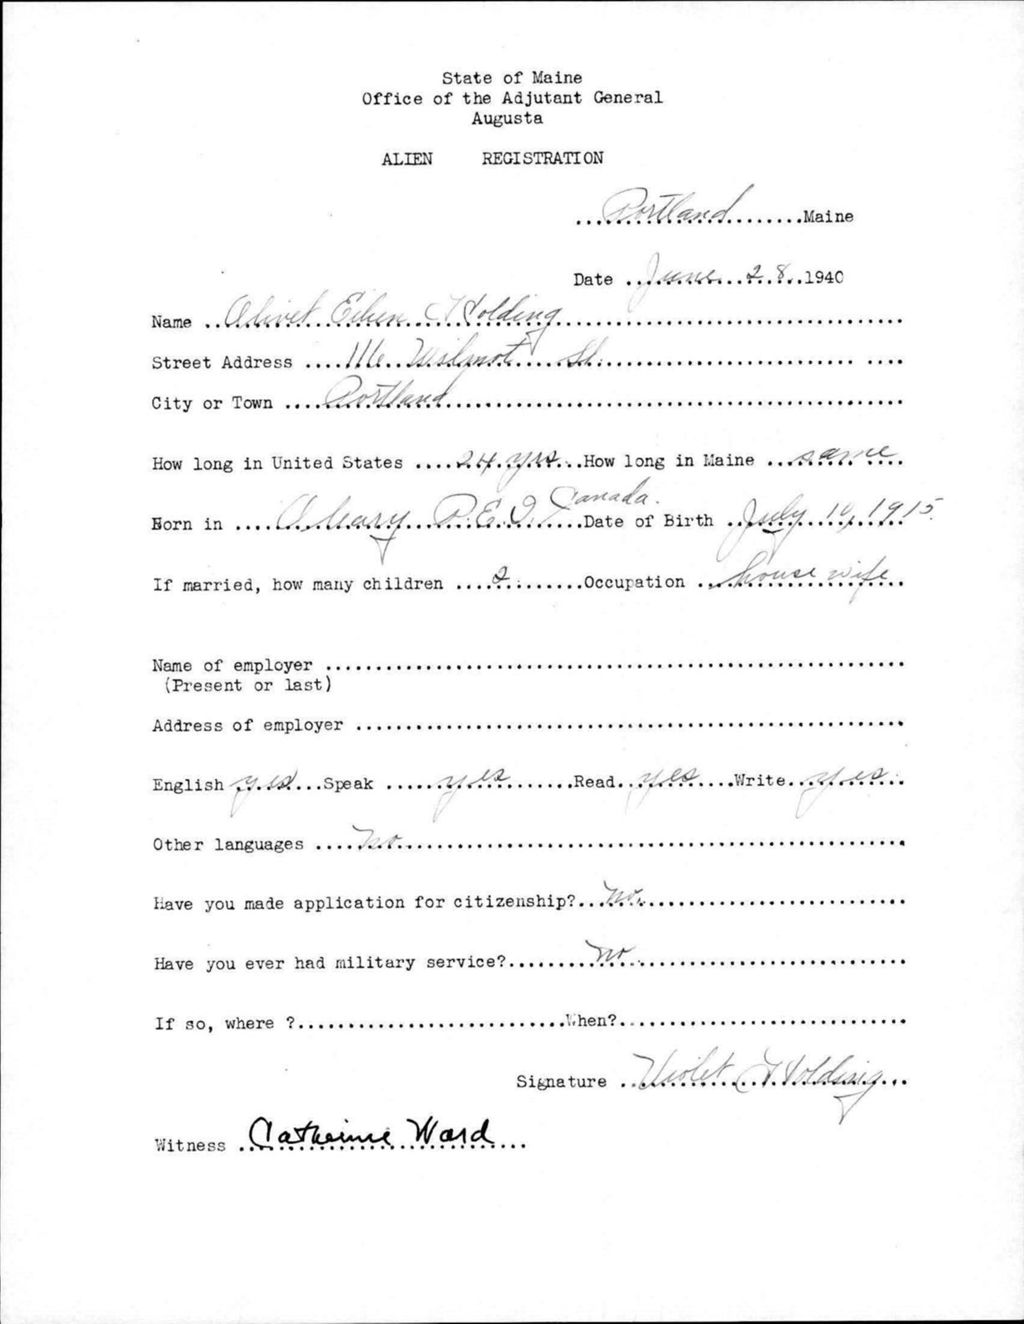 State of Maine
Office of the Adjutant General
Augusta
ALIEN REGISTRATION
Portland Maine
Date June 28 1940
Name Olivet Eileen Holding
Street Address 116 Wilmot St.
City or Town Portland
How long in United States 24 yrs How long in Maine same
Born in O'Leary P.E.I. Canada. Date of Birth July 10, 1915
If married, how many children 2 Occupation house wife
Name of employer
(Present or last)
Address of employer
English yes Speak yes Read yes Write yes
Other languages no
Have you made application for citizenship? No
Have you ever had military service? No
If so, where ? When?
Signature Violet Holding
Witness Catherine Ward